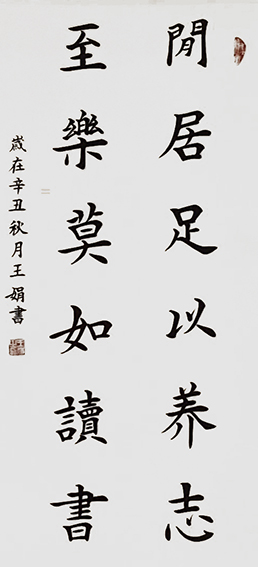 閒居足以养志
至樂莫如讀書
歲在辛丑秋月王娟書